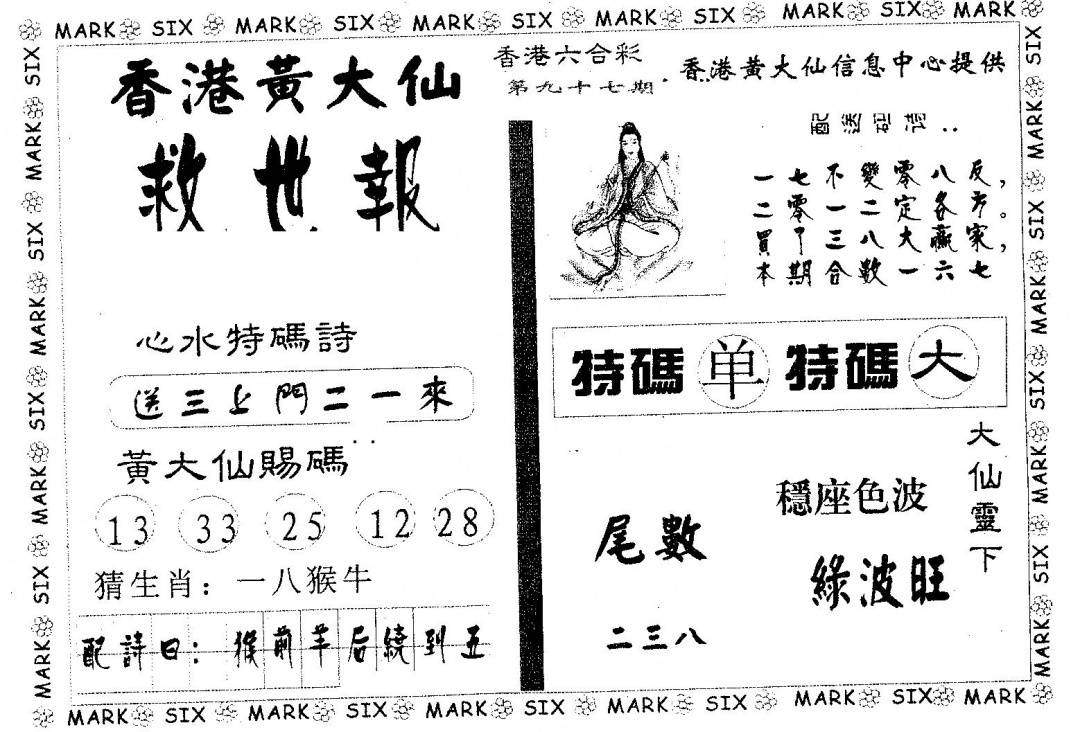 MARK SIX MARK SIX MARK SIX MARK SIX MARK SIX MARK
香港黃大仙
救世報
香港六合彩
第九十七期
香港黃大仙信息中心提供
配送詩:
一七不變零八反，
二零一二定各方。
買中三八大贏家，
本期合數一六七
心水特碼詩
送三上門二一來
黃大仙賜碼
13 33 25 12 28
猜生肖：一八猴牛
配詩曰：猴前羊后繞到五
特碼 单 特碼 大
大仙靈下
穩座色波
綠波旺
尾數
二三八
MARK SIX MARK SIX MARK SIX MARK SIX MARK SIX MARK
SIX MARK SIX MARK SIX MARK SIX MARK
SIX MARK SIX MARK SIX MARK SIX MARK